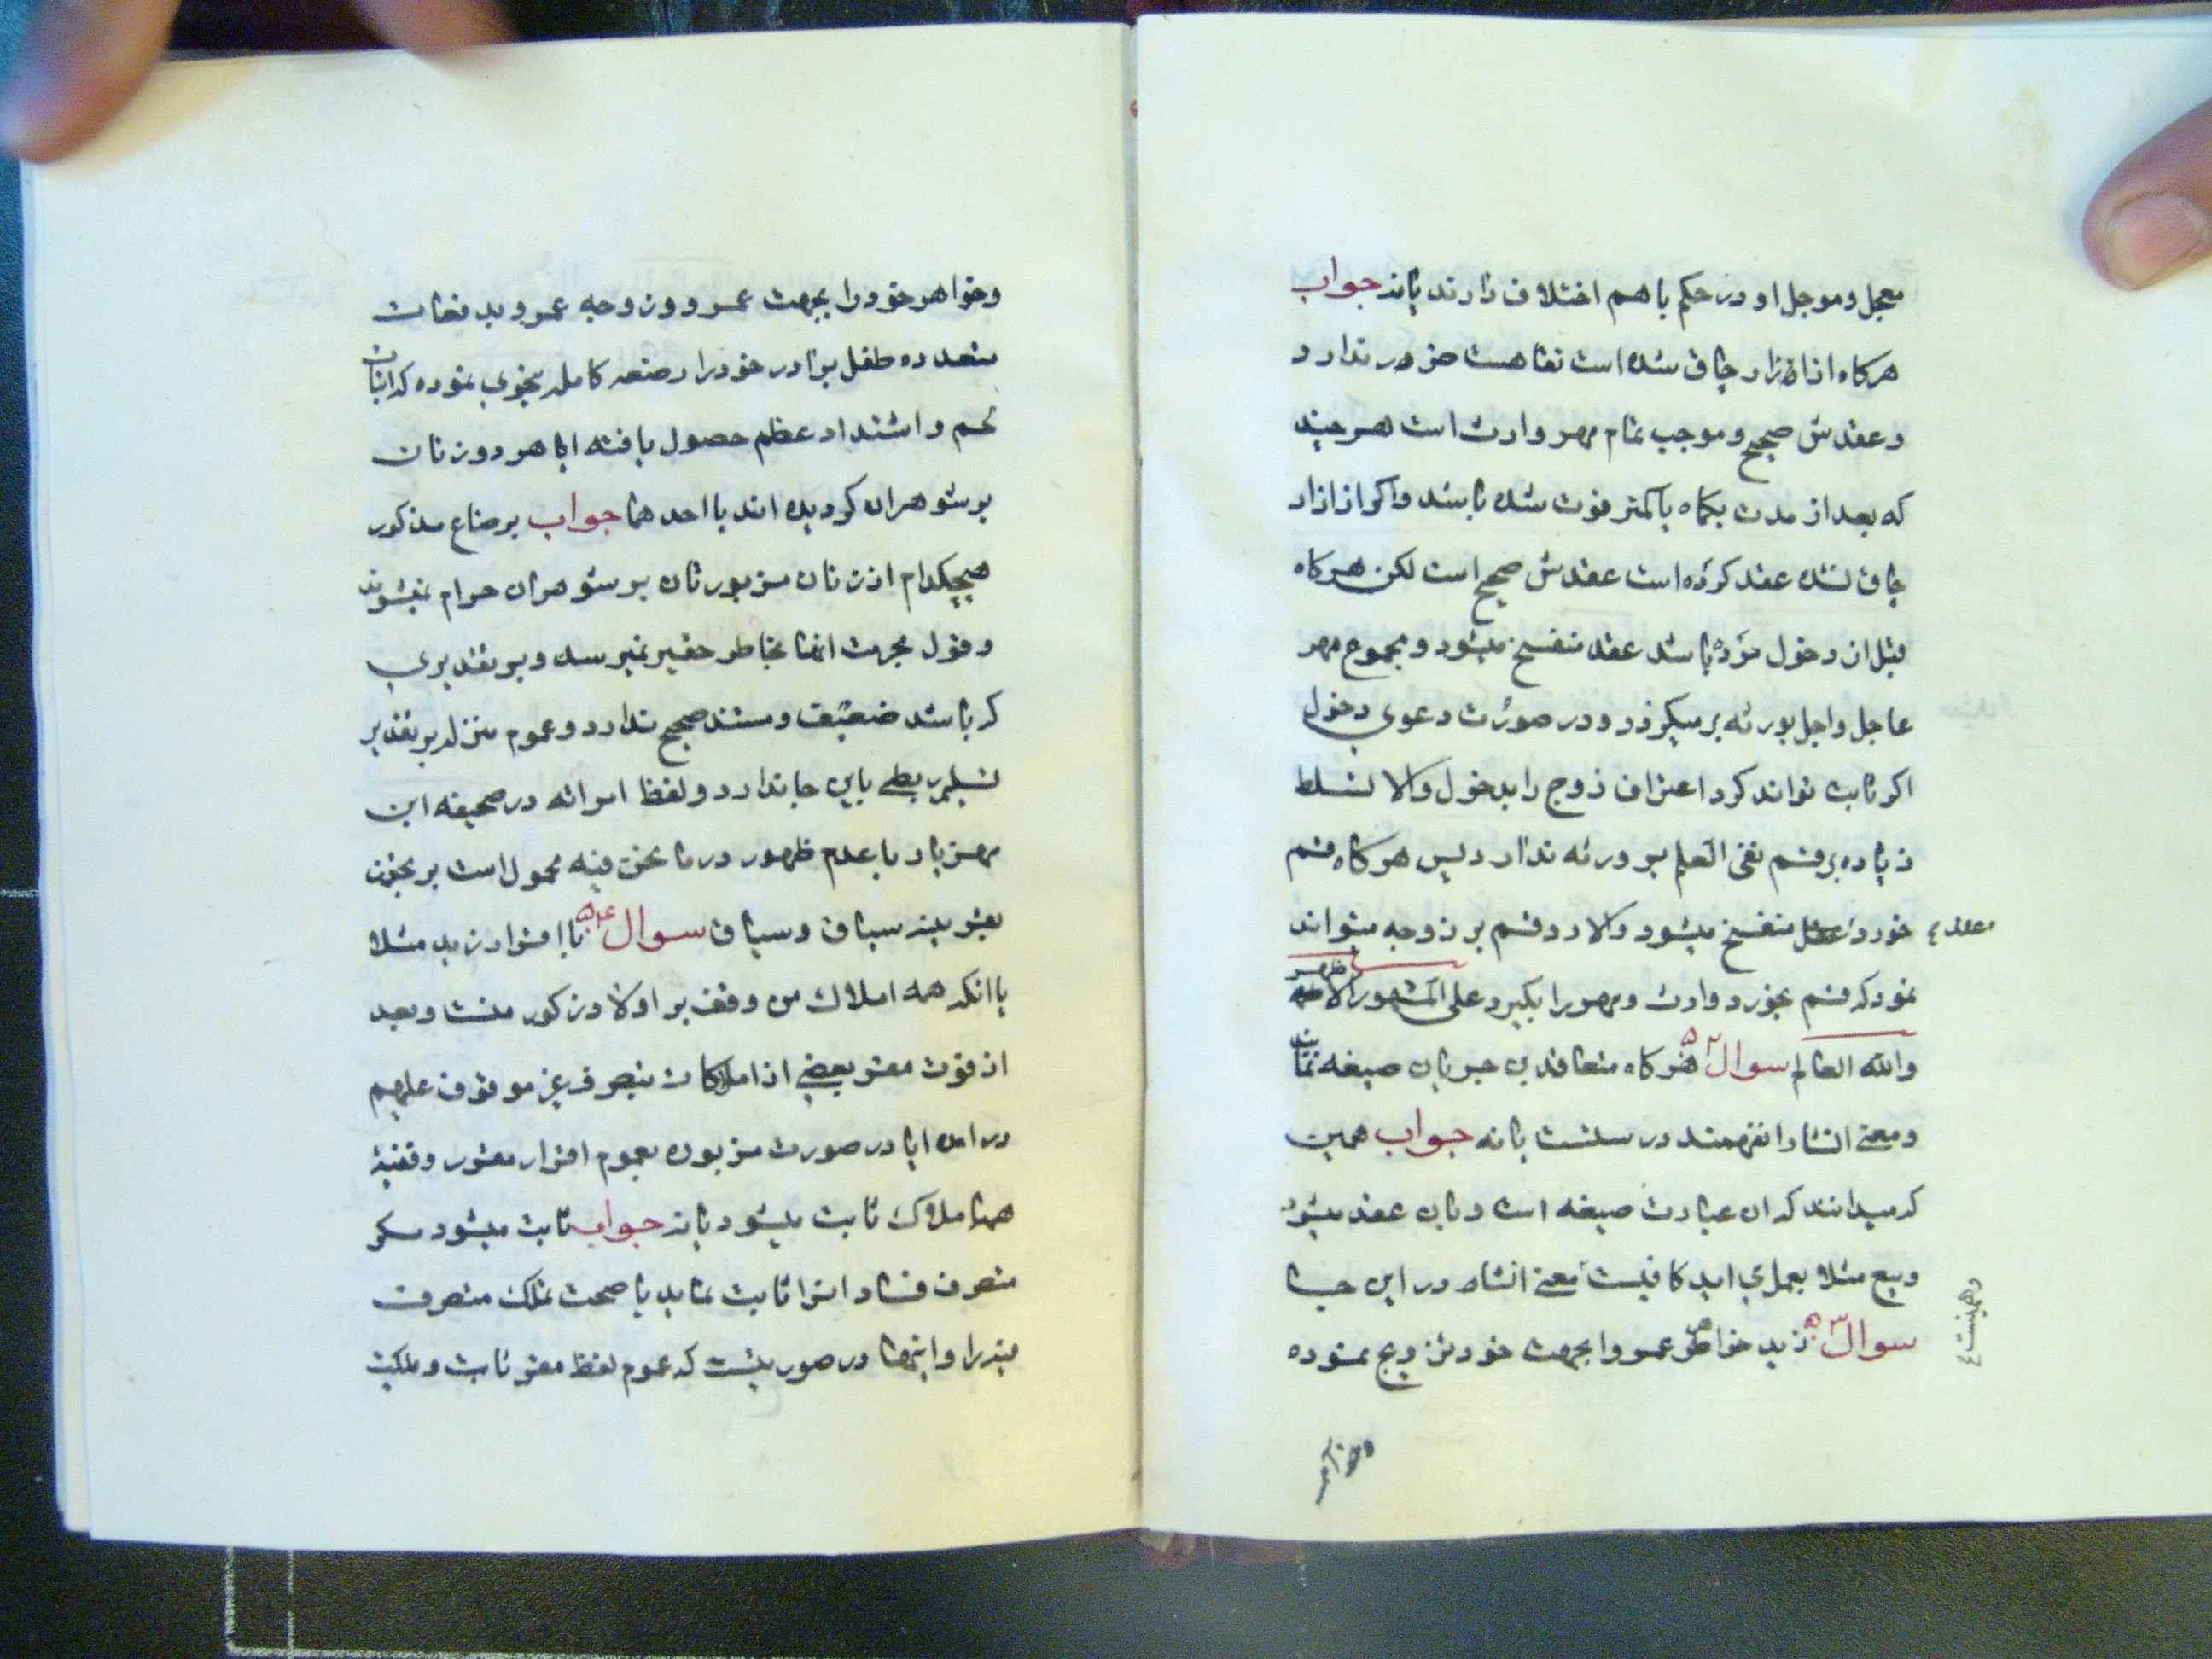 معجل و موجل او در حکم با هم اختلاف دارند یا نه جواب
هرکاه از ازار چاق شده است نقاهت ضرر ندارد
و عقدش صحیح و موجب تمام مهر و ارث است هر چند
که بعد از مدت یکماه یا کمتر فوت شده باشد و اکر از ازار
چاق نشده عقد کرده است عقدش صحیح است لکن هرکاه
قبل از دخول مرده باشد عقد منفسخ میشود و مجموع مهر
عاجل و اجل بورثه بر میکردد و در صورت دعوی دخول
اکر ثابت تواند کرد اعتراف زوج را بدخول والا تسلط
زیاده بر قسم نفی العلم بر ورثه ندارد پس هرکاه قسم
خورد عقد منفسخ میشود والا رد قسم بر زوجه میتواند
عقد
نمود که قسم بخورد و ارث و مهر را بکیرد علی المشهور الاظهر
والله العالم سوال ۵۲ هرکاه متعاقدین جریان صیغه
و معنی انشا را نفهمند درستست یا نه جواب همین
که میدانند که ان عبارت صیغه است و بان عقد میشود
و بیع مثلا بعمل می اید کافیست معنی انشاء در این جا
همینست
سوال ۵۳ زید خواهر عمرو را بجهت خود تزویج نموده
و خواهر
و خواهر خود را بجهت عمرو و زوجه عمرو بدفعات
متعدده طفل برادر خود را رضعه کامله بنحوی نموده که انبات
لحم و اشتداد عظم حصول یافته ایا هر دو زنان
بر شوهران کردیده اند یا احدهما جواب برضاع مذکور
هیچکدام از زنان مزبورتان بر شوهران حرام نمیشوند
و قول بحرمت انها بخاطر حقیر نمیرسد و بر تقدیری
که باشد ضعیف و مستند صحیح ندارد و عموم منزله بر تقدیر
تسلیم ربطی باین جا ندارد و لفظ امراته در صحیفه ابن
مهزیار با عدم ظهور در ما نحن فیه محمول است بر تجوز
بقرینه سباق و سیاق سوال ۵۴ با اقرار زید مثلا
با انکه همه املاک من وقف بر اولاد ذکور منست و بعد
از فوت مقر بعضی از املاکات بتصرف غیر موقوف علیهم
در امده ایا در صورت مزبوره بعموم اقرار مقر وقفیة
همه املاک ثابت میشود یا نه جواب ثابت میشود مکر
متصرف فساد انرا ثابت نماید یا صحت تملک متصرف
فیه را و اینها در صورتیست که عموم لفظ مقر ثابت و ملکیت